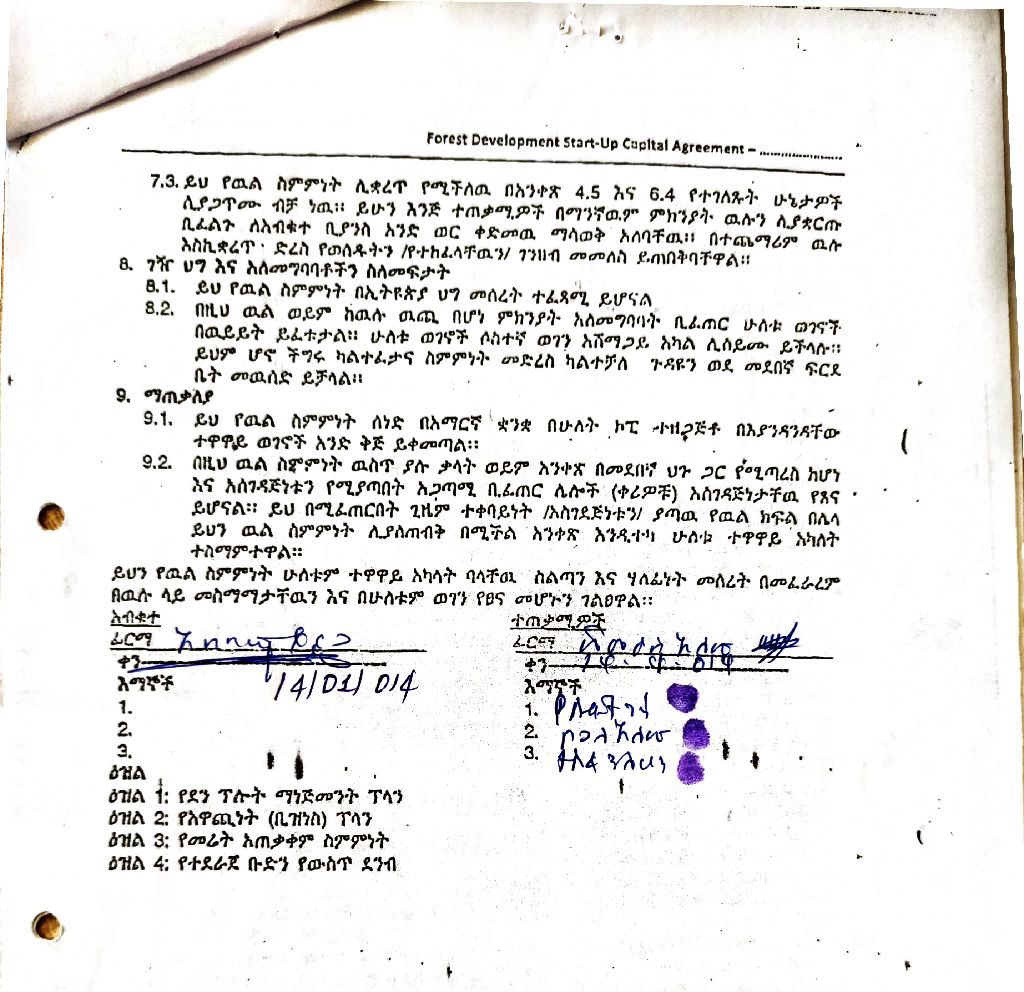 Forest Development Start-Up Capital Agreement – ........................
7.3. ይህ የዉል ስምምነት ሊቋረጥ የሚችለዉ በአንቀጽ 4.5 እና 6.4 የተገለጹት ሁኔታዎች
ሲያጋጥሙ ብቻ ነዉ። ይሁን እንጅ ተጠቃሚዎች በማንኛዉም ምክንያት ዉሉን ሊያቋርጡ
ቢፈልጉ ለእብቁተ ቢያንስ አንድ ወር ቀድመዉ ማሳወቅ አለባቸዉ። በተጨማሪም ዉሉ
እስኪቋረጥ ድረስ የወሰዱትን /የተከፈላቸዉን/ ገንዘብ መመለስ ይጠበቅባቸዋል።
8. ገዥ ህግ እና አለመግባባቶችን ስለመፍታት
8.1. ይህ የዉል ስምምነት በኢትዩጵያ ህግ መሰረት ተፈጻሚ ይሆናል
8.2. በዚህ ዉል ወይም ከዉሉ ዉጪ በሆነ ምክንያት አለመግባባት ቢፈጠር ሁለቱ ወገኖች
በዉይይት ይፈቱታል። ሁለቱ ወገኖች ሶስተኛ ወገን አሸማጋይ አካል ሊሰይሙ ይችላሉ።
ይህም ሆኖ ችግሩ ካልተፈታና ስምምነት መድረስ ካልተቻለ ጉዳዩን ወደ መደበኛ ፍርደ
ቤት መዉሰድ ይቻላል።
9. ማጠቃለያ
9.1. ይህ የዉል ስምምነት ሰነድ በአማርኛ ቋንቋ በሁለት ኮፒ ተዘጋጅቶ በእያንዳንዳቸው
ተዋዋይ ወገኖች አንድ ቅጅ ይቀመጣል።
9.2. በዚህ ዉል ስምምነት ዉስጥ ያሉ ቃላት ወይም አንቀጽ በመደበኛ ህጉ ጋር የሚጣረስ ከሆነ
እና አስገዳጅነቱን የሚያጣበት አጋጣሚ ቢፈጠር ሌሎች (ቀሪዎቹ) አስገዳጅነታቸዉ የጸና
ይሆናል። ይህ በሚፈጠርበት ጊዜም ተቀባይነት /አስገደጅነቱን/ ያጣዉ የዉል ክፍል በሌላ
ይህን ዉል ስምምነት ሊያስጠብቅ በሚችል አንቀጽ እንዲተካ ሁለቱ ተዋዋይ አካለት
ተስማምተዋል።
ይህን የዉል ስምምነት ሁለቱም ተዋዋይ አካላት ባላቸዉ ስልጣን እና ሃላፊነት መሰረት በመፈራረም
በዉሉ ላይ መስማማታቸዉን እና በሁለቱም ወገን የፀና መሆኑን ገልፀዋል።
እብቁተ ተጠቃሚዎች
ፊርማ ፊርማ
ቀን ቀን
14/01/014
እማኞች እማኞች
1. 1.
2. 2.
3. 3.
ዕዝል
ዕዝል 1: የደን ፕሎት ማነጅመንት ፕላን
ዕዝል 2: የአዋጪነት (ቢዝነስ) ፕላን
ዕዝል 3: የመሬት አጠቃቀም ስምምነት
ዕዝል 4: የተደራጀ ቡድን የውስጥ ደንብ